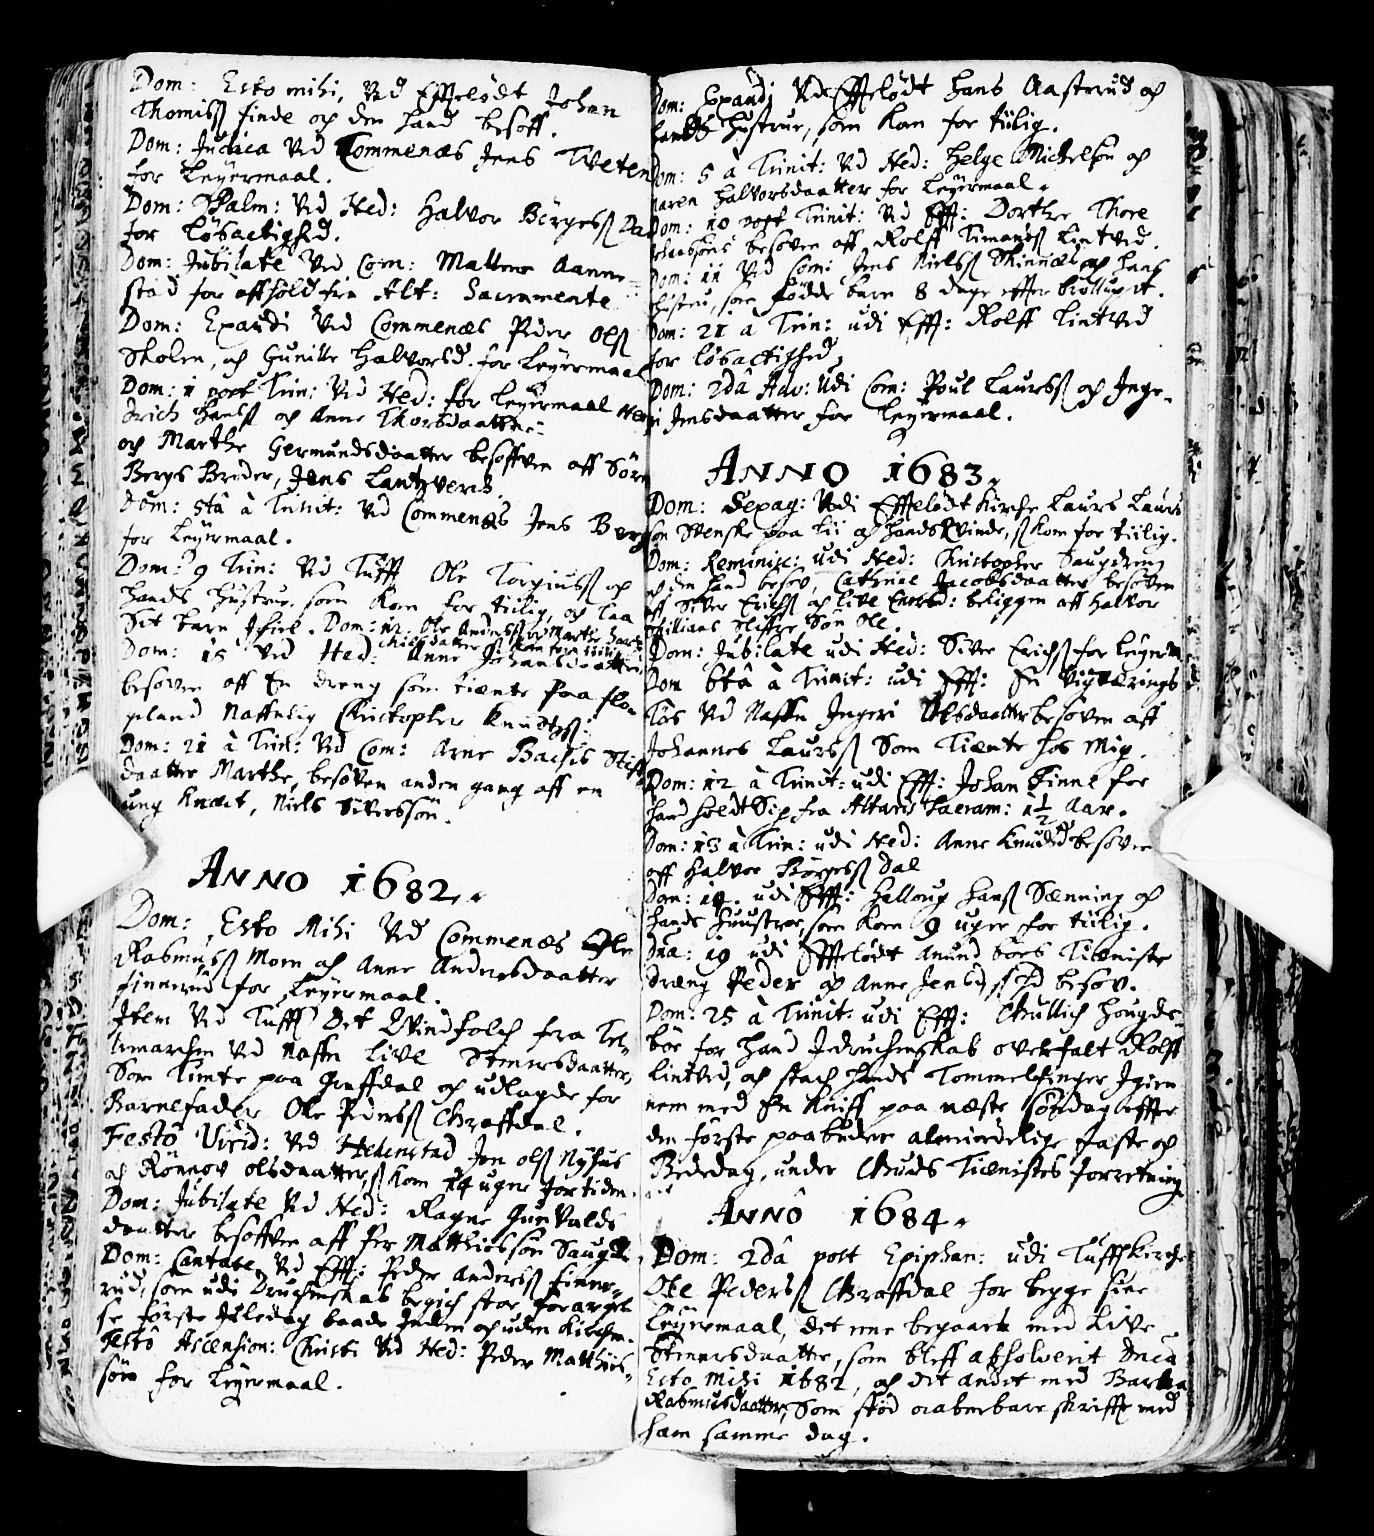 Dom: Esto mihi, Ved Efftelødt Johan
Thomisß finde och den hand besoff.
Dom: Judica Ved Commenæs Jens Tveten
for Leÿermaal.
Dom: Palm: Ved Hed: Halvor Børgesß Dal
for Løsactighed.
Dom: Jubilate Ved Com: Mattere Aanne-
stad for affhold fra Alt: Sacramente
Dom: Exaudi Ved Commenæs Peder Olsß
Skolen, och Gunille Halvorsd. for Leÿermaal
Dom: 1 post Trin: Ved Hed: for Leÿermaal Hen
drich Hansß och Anne Thorsdaatter
och Marthe Germundsdaatter besoffven aff Søren
Bergs Broder, Jens Lantzverch.
Dom: 5tâ à Trinit: Ved Commenæs Jens Berg
for Leÿermaal.
Dom: 9 Trin: Ved Tufft Ole Torgiusß och
hands Hustrue som kom for tiilig, och laa
Sit barn ihiel. Dom: 12: Ole Andersß och Marthe
Michelsdatter som kom for tiilig
Dom: 15 Ved Hed: Anne Johansdaatter
besoven aff En dreng som tiænte paa
pland Naffnlig Christopher Knudsß:
Dom: 21 à Trin: Ved Com: Arne Bachis Stiff
daatter Marthe, besoven anden gang aff en
ung Knæct, Niels Siversøn.
ANNO 1682.
Dom: Esto Mihi Ved Commenæs Ole
Rasmusß Moen och Anne Andersdaatter
finnerud for Leÿermaal.
Item Ved Tufft Det Qvindfolch fra Tel-
lemarchen Ved Naffn Live Stenersdaatter,
Som tiente paa Graffdal och udlagde for
Barnefader Ole Pedersß Graffdal.
Festô Virid: Ved Hedenstad Jon Olsß Nÿhus
och Rønnov Olsdaatter, s kom 14 uger for tiden.
Dom: Jubilate Ved Hed: Ragne Gunvalds
daatter besoffven aff Per Matthiessøn Saugd
Dom: Cantate Ved Efft: Peder Andersß Finne-
rud, som udi Druchenskab begich stor forargel
se første Juledag baade inden och uden Kirchen.
Festô Ascension: Christi Ved Hed: Peder Matthies-
søn for Leÿermaal.
Dom: Exaudi Ved Efftelødt Hans Aasterud och
hands Hustrue, som kom for tiilig.
Dom: 5 à Trinit: Ved Hed: Helge Michelsøn och
Karen Halvorsdaatter for Leÿermaal.
Dom: 10 post Trinit: Ved Efft: Dorthe Thore
besoven aff Rolff Timandsß Lintved.
Dom: 11 Ved Com: Jens Nielsß Skinnæs och hans
Hustru, som fødde barn 8 dage effter brøllupet.
Dom: 21 à Trin: udi Efft: Rolff Lintved
for løsactighed.
Dom: 2dâ Adv: udi Com: Poul Laursß och Inge-
ri Jensdaatter for Leÿermaal.
ANNO 1683.
Dom: Sexag: Udi Efftelødt Kirche Laurs Laurs
søn Stenske paa Lii och hands Kvinde, s kom for tiilig.
Dom: Reminisc: udi Hed: Christopher Saugdreng
och den hand besov, Cathrine Jacobsdaatter besoven
aff Siver Erichsß och Live Enersd: beliggen aff Halvor
Søn Ole.
Dom: Jubilate udi Hed: Siver Erichsß for Leÿerm
Dom 6tâ à Trinit: udi Efft: En Vigværings
Tøs Ved Naffn Ingeri Olsdaatter besoven aff
Johannes Laursß Som Tiænte hos Mig.
Dom: 12 à Trinit: udi Efft: Johan Finne for
hand holdt Sig fra Altaris Sacram: 1½ Aar.
Dom: 13 à Trin: udi Hed: Anne Knudsd besoven
aff Halvor Børgesß Dal
Dom: 14. udi Efft: Helloug Hansß Sænning och
hands Huustroe, som kom 9 uger for tiilig.
Dñâ: 19 udi Efftelødt Anund Bøes Tiæniste
dræng Peder och Anne Jensd, s hd besov.
Dom: 25 à Trinit: udi Efft: Gullich Hougde-
bøe for hand I druchenskab overfalt Rolff
Lintved, och stach hands Tommelfinger Igien
nem med En Kniff paa næste Søndag effter
den første paabudne almindelige Faste och
Bededag, under Guds Tiænistes forretning
ANNÔ 1684.
Dom: 2dâ post Epiphan: udi Tufft Kirche
Ole Pedersß Graffdal for begge sine
Leÿermaal, det ene begaaet med Live
Stenersdaatter, som bleff absolverit Dnicâ
Esto Mihi 1682, och det andet med Barbra
Rasmusdaatter, Som stod aabenbare skrifft med
ham samme dag.